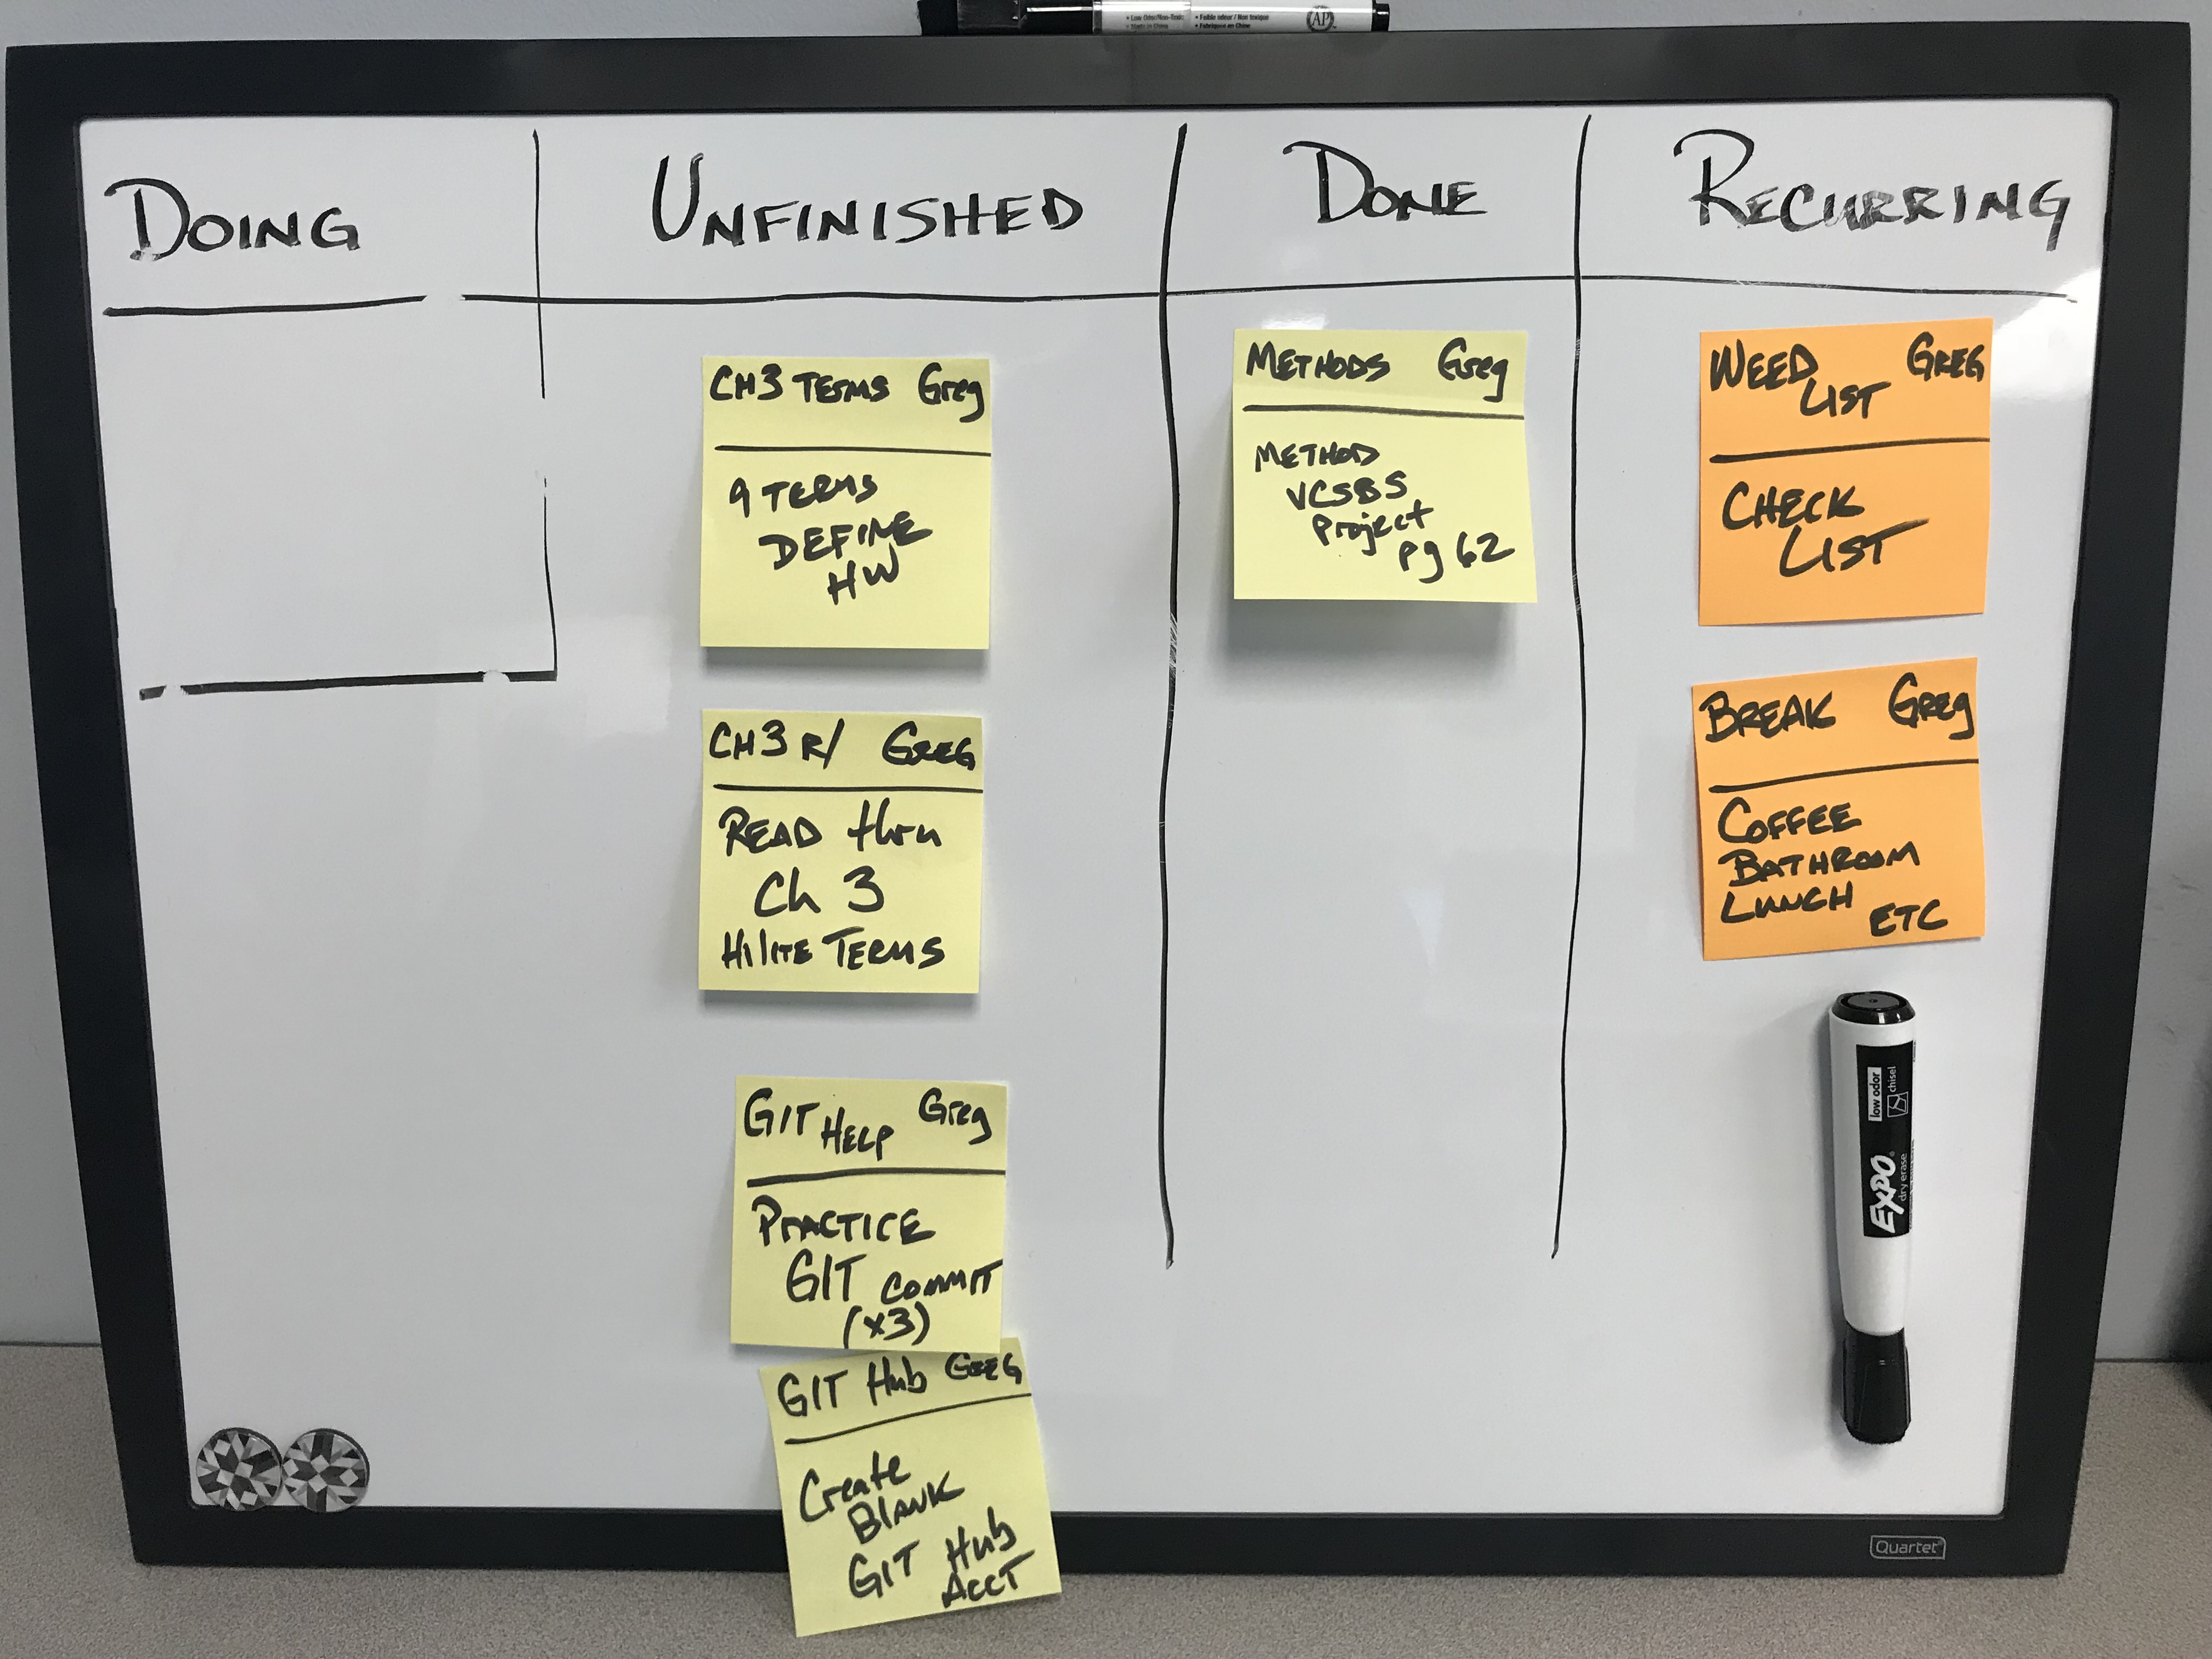 • Low Odor/Non-Toxic • Faible odeur / Non toxique
• Made in China • Fabriqué en Chine
AP
DOING
UNFINISHED
DONE
RECURRING
CH3 TERMS Greg
9 TERMS
DEFINE
HW
CH3 R/ GREG
READ thru
Ch 3
HiliTE TERMS
GIT HELP Greg
PRACTICE
GIT COMMIT
(x3)
GIT Hub GREG
Create
BLANK
GIT Hub
ACCT
METHODS Greg
METHOD
VCSBS
Project
Pg 62
WEED GREG
LIST
CHECK
LIST
BREAK Greg
COFFEE
BATHROOM
LUNCH
ETC
EXPO
dry erase
low odor
chisel
Quartet